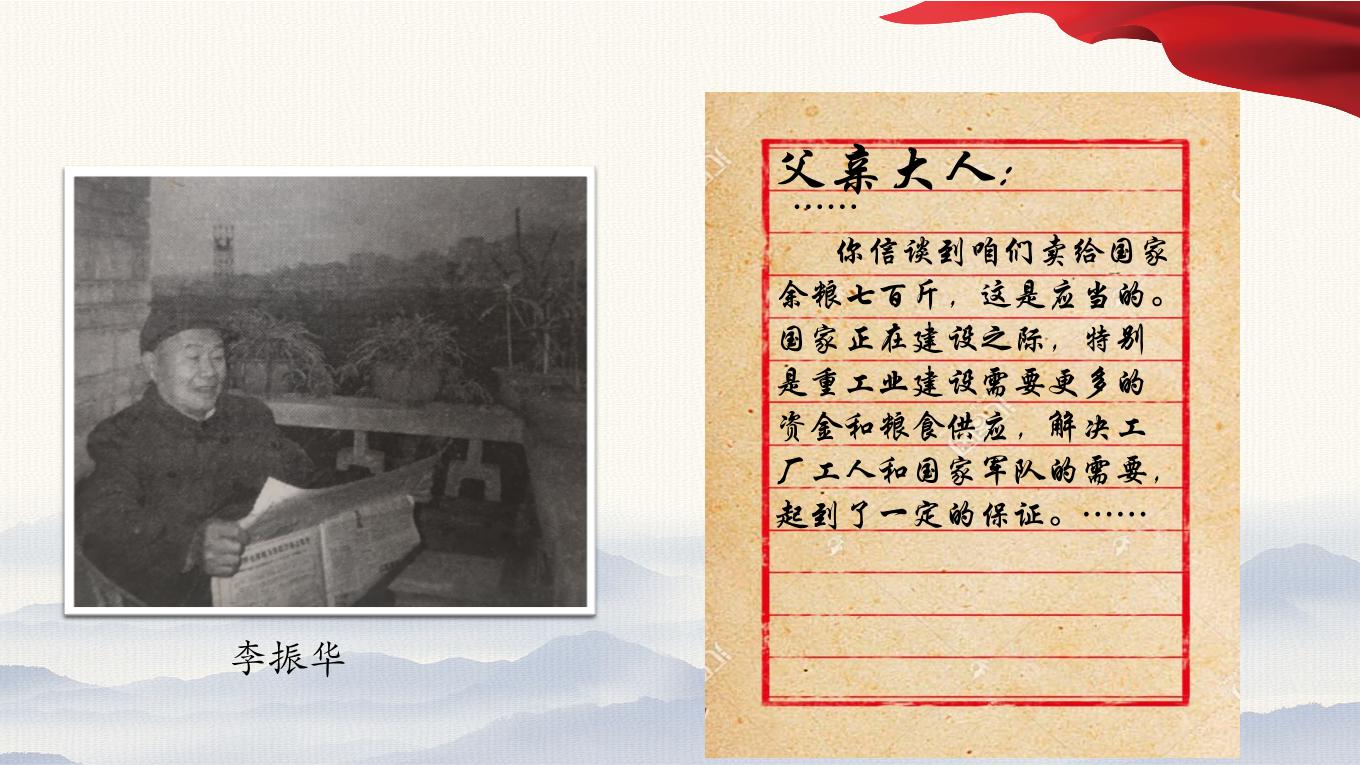 父亲大人：
……
你信谈到咱们卖给国家
余粮七百斤，这是应当的。
国家正在建设之际，特别
是重工业建设需要更多的
资金和粮食供应，解决工
厂工人和国家军队的需要，
起到了一定的保证。……
李振华